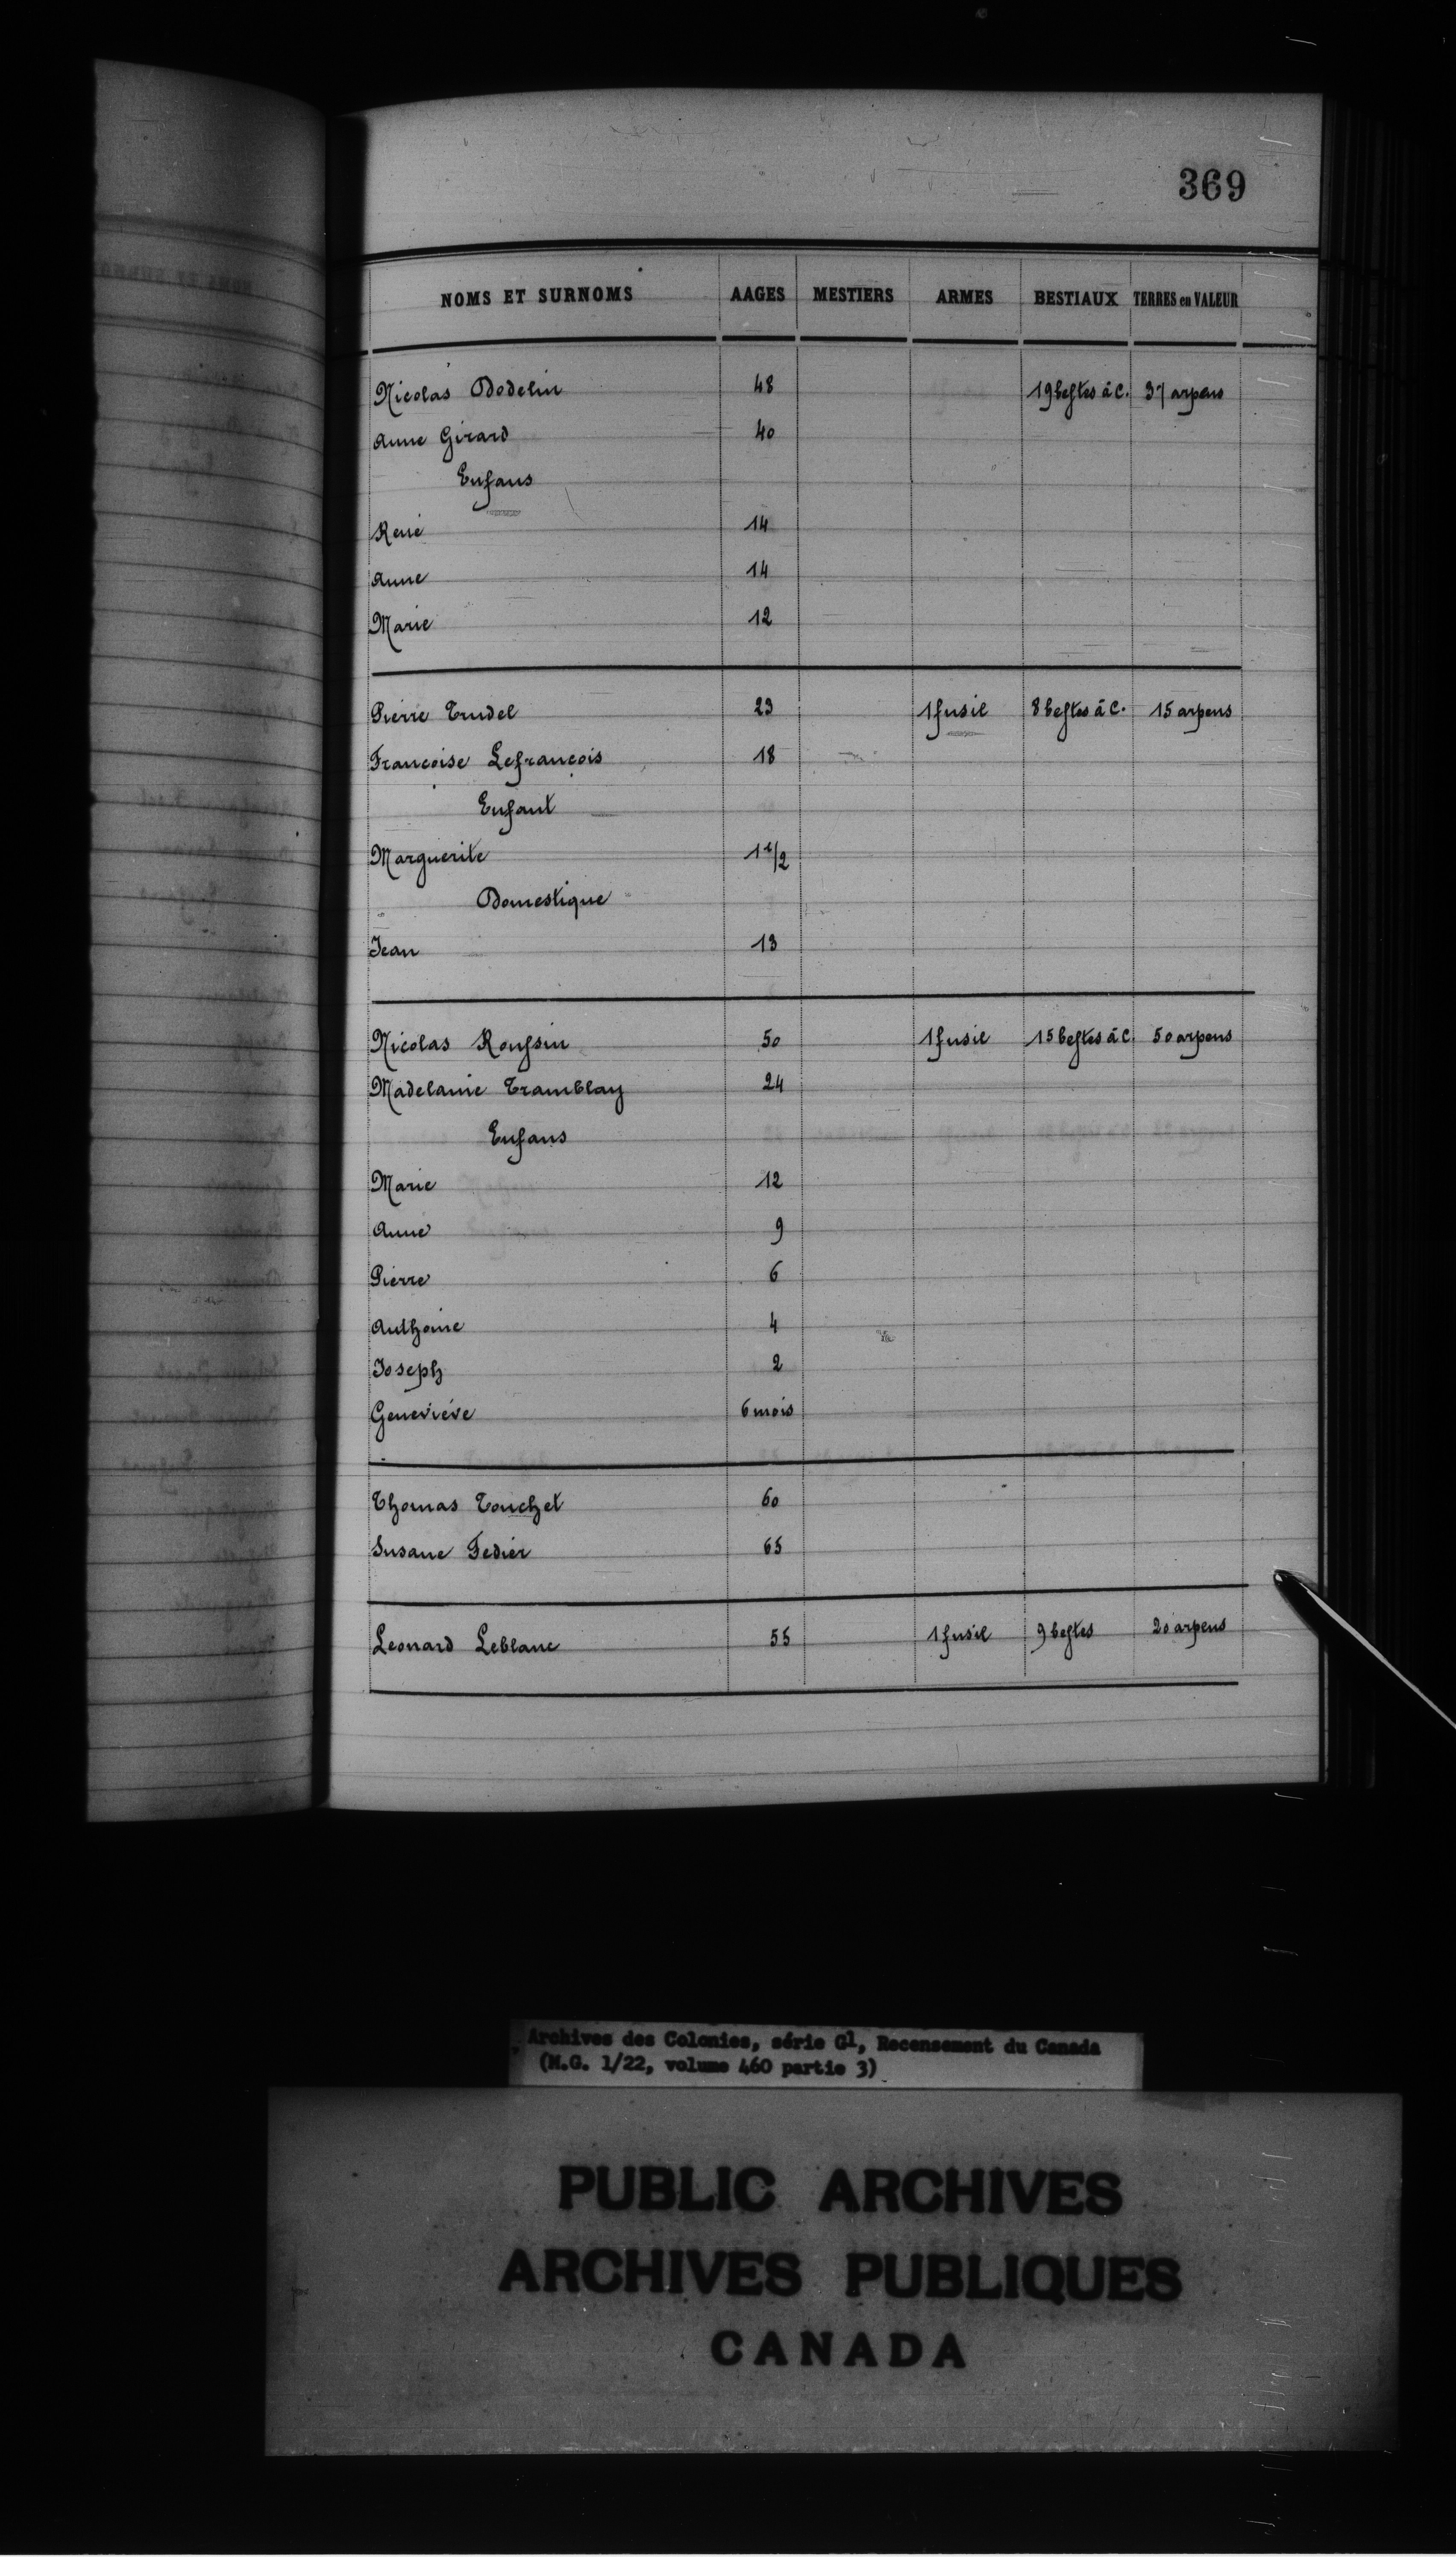 369
NOMS ET SURNOMS AAGES MESTIERS ARMES BESTIAUX TERRES en VALEUR
Nicolas Dodelin 48 19 bestes à C. 37 arpens
Anne Girard 40
Enfans
René 14
Anne 14
Marie 12
Pierre Trudel 23 1 fusil 8 bestes à C. 15 arpens
Francoise Lefrançois 18
Enfant
Marguerite 1 1/2
Domestique
Jean 13
Nicolas Roussin 50 1 fusil 15 bestes à C. 50 arpens
Madelaine Tramblay 24
Enfans
Marie 12
Anne 9
Pierre 6
Anthoine 4
Joseph 2
Geneviève 6 mois
Thomas Touchet 60
Susane Fedier 65
Leonard Leblanc 55 1 fusil 9 bestes 20 arpens
Archives des Colonies, série G1, Recensement du Canada
(M.G. 1/22, volume 460 partie 3)
PUBLIC ARCHIVES
ARCHIVES PUBLIQUES
CANADA